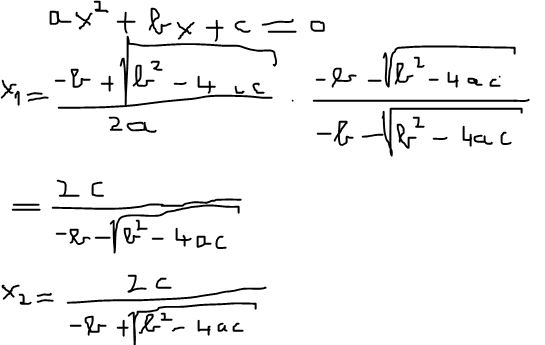 ax² + bx + c = 0
x₁ = (-b + √(b² - 4ac))/(2a) · (-b - √(b² - 4ac))/(-b - √(b² - 4ac))
= (2c)/(-b - √(b² - 4ac))
x₂ = (2c)/(-b + √(b² - 4ac))